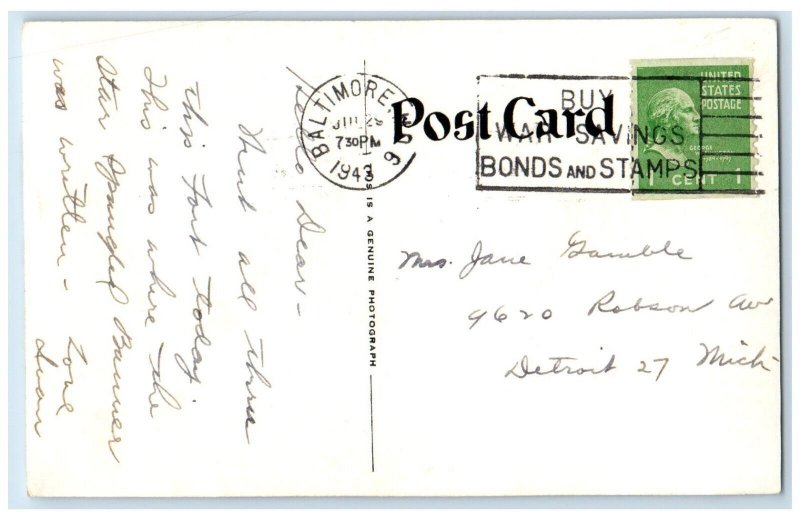 Post Card
BALTIMORE, MD
JUL 29
7 30 PM
1943
BUY
WAR SAVINGS
BONDS AND STAMPS
UNITED
STATES
POSTAGE
GEORGE
1 CENT 1
THIS IS A GENUINE PHOTOGRAPH
Hello Dear -
Went all thru
this Fort today.
This was where the
Star Spangled Banner
was written - Love
Mrs. Jane Gamble
9620 Robson Ave
Detroit 27 Mich